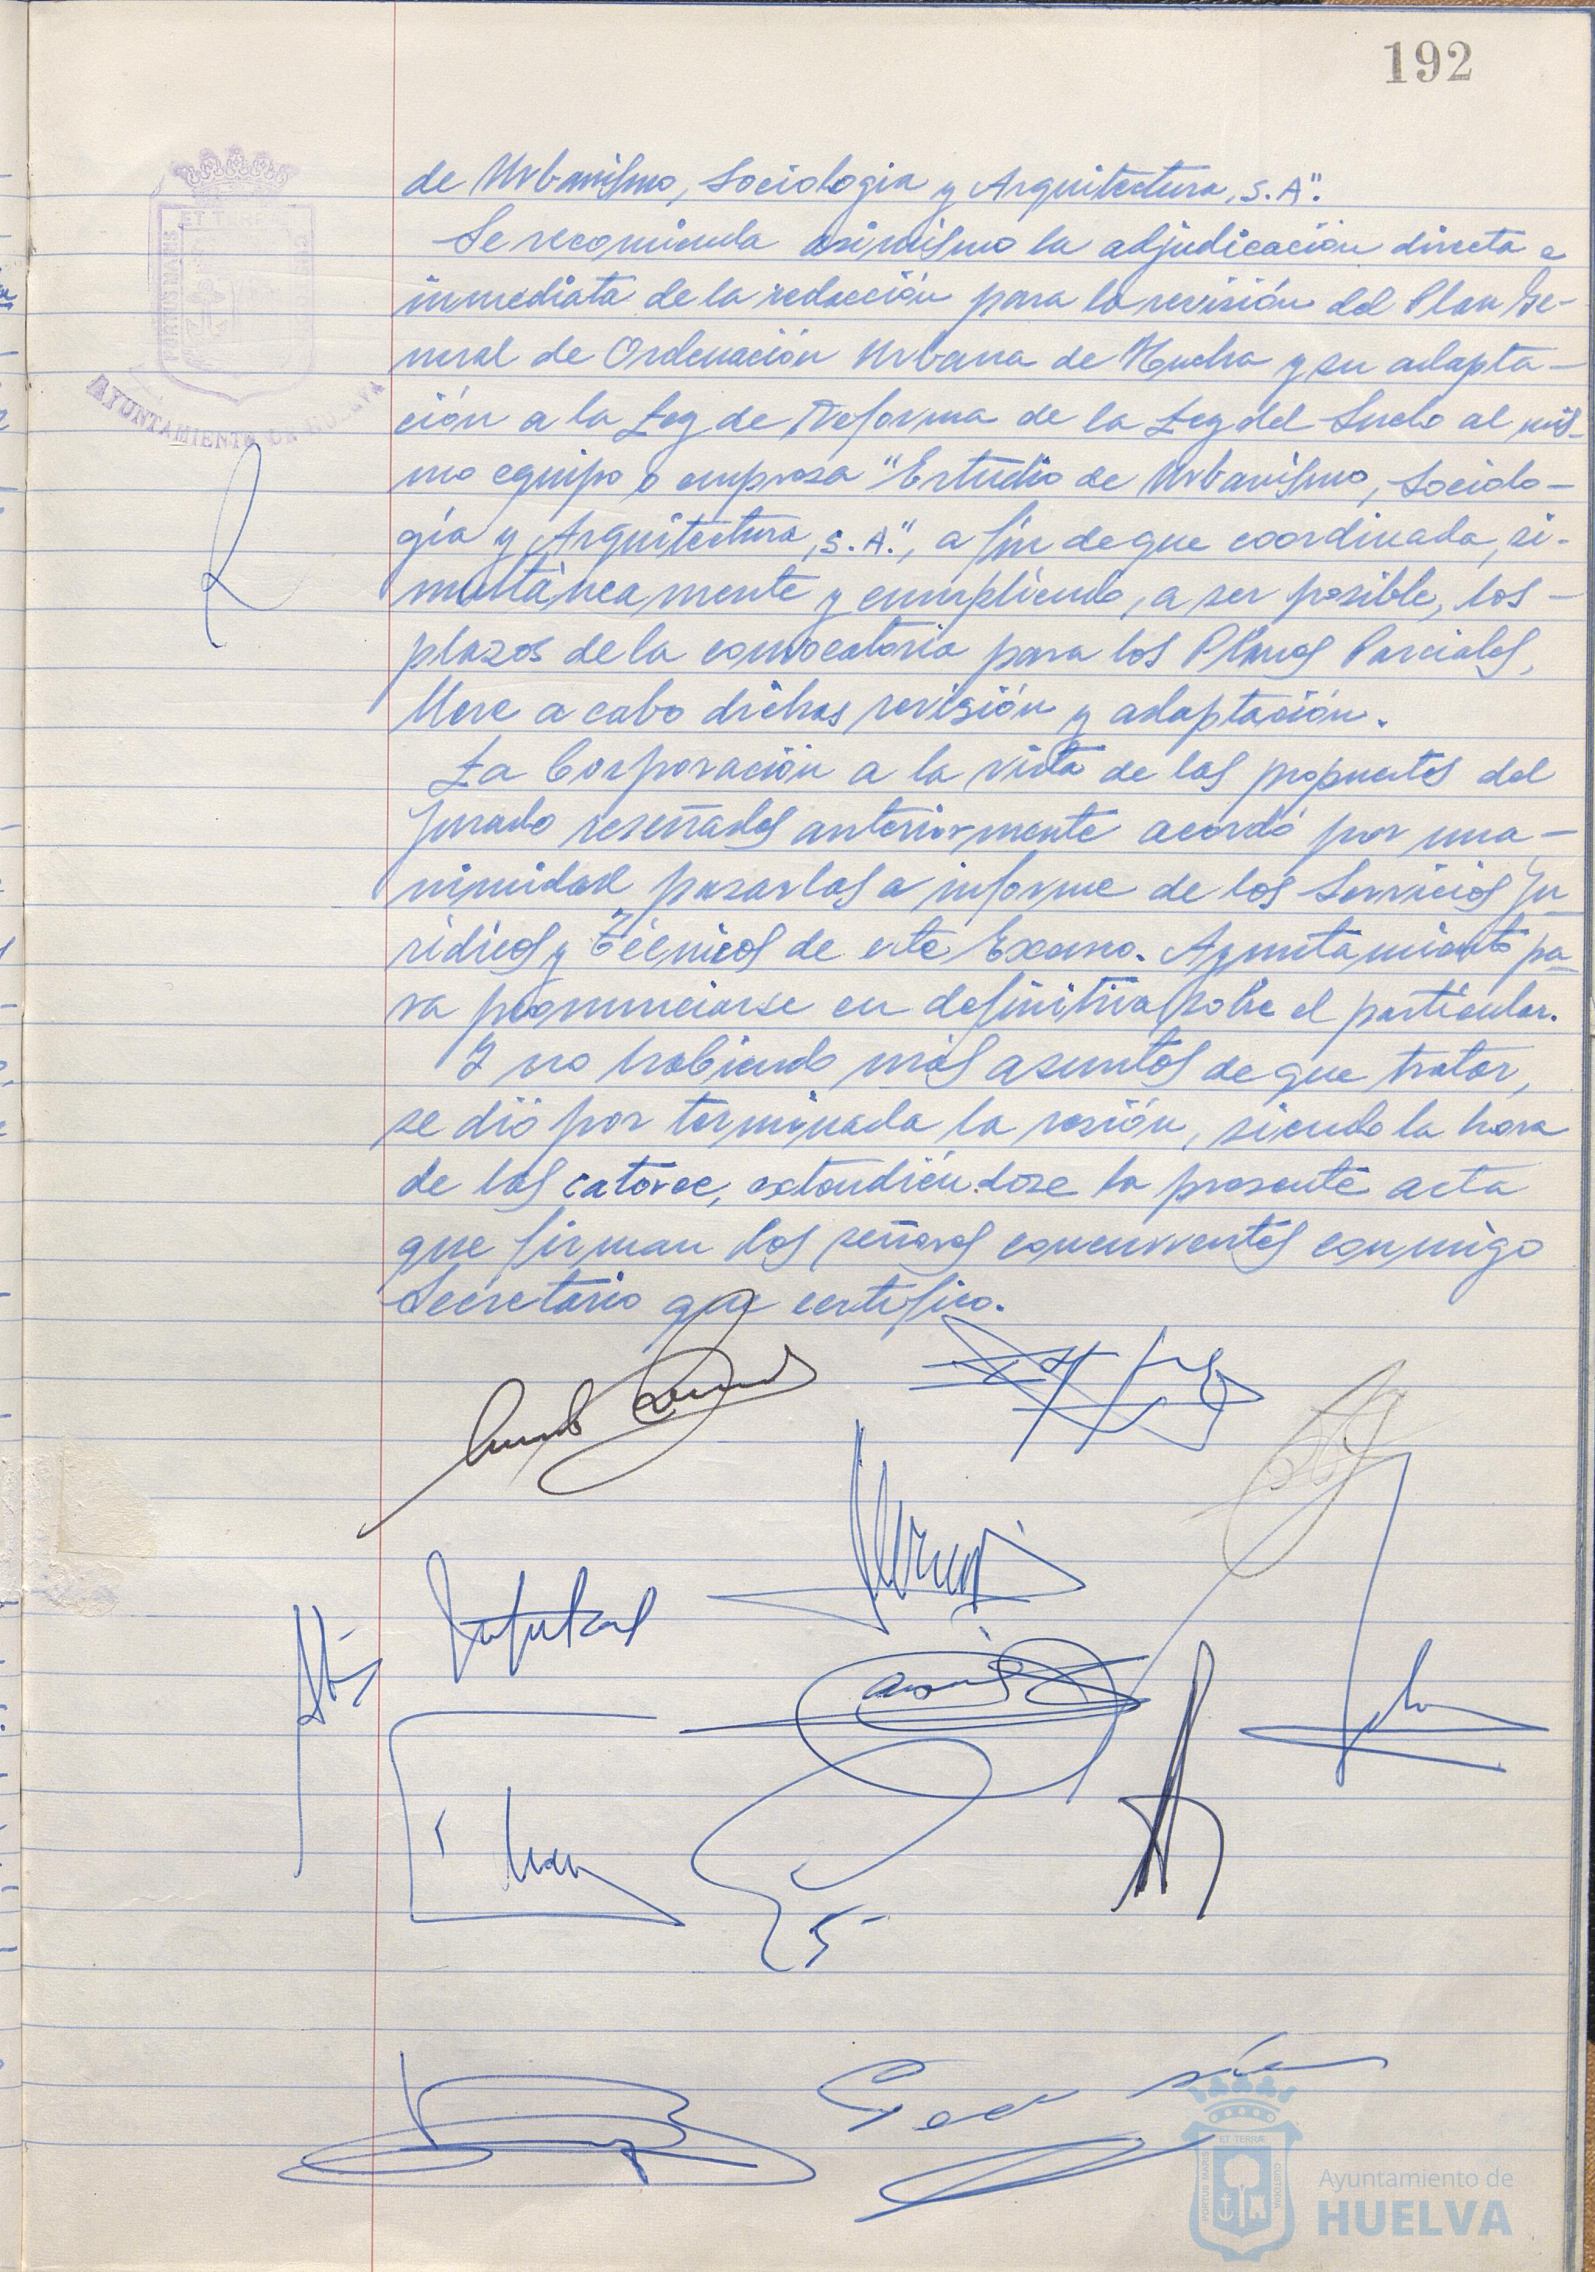 192
de Urbanismo, Sociologia y Arquitectura, S.A".
Se recomienda asimismo la adjudicación directa e
inmediata de la redacción para la revisión del Plan Ge-
neral de Ordenación Urbana de Huelva y su adapta-
ción a la Ley de Reforma de la Ley del Suelo al mis-
mo equipo o empresa "Estudio de Urbanismo, Sociolo-
gía y Arquitectura, S.A.", a fin de que coordinada, si-
multáneamente y cumpliendo, a ser posible, los
plazos de la convocatoria para los Planes Parciales,
lleve a cabo dichas revisión y adaptación.
La Corporación a la vista de las propuestas del
Jurado reseñadas anteriormente acordó por una-
nimidad pasarlas a informe de los Servicios Ju
rídicos y Técnicos de este Excmo. Ayuntamiento pa-
ra pronunciarse en definitiva sobre el particular.
Y no habiendo más asuntos de que tratar,
se dió por terminada la sesión, siendo la hora
de las catorce, extendiéndose la presente acta
que firman los señores concurrentes conmigo
Secretario que certifico.
PORTUS MARIS ET TERRAE CUSTODIA
AYUNTAMIENTO DE HUELVA
Ayuntamiento de
HUELVA